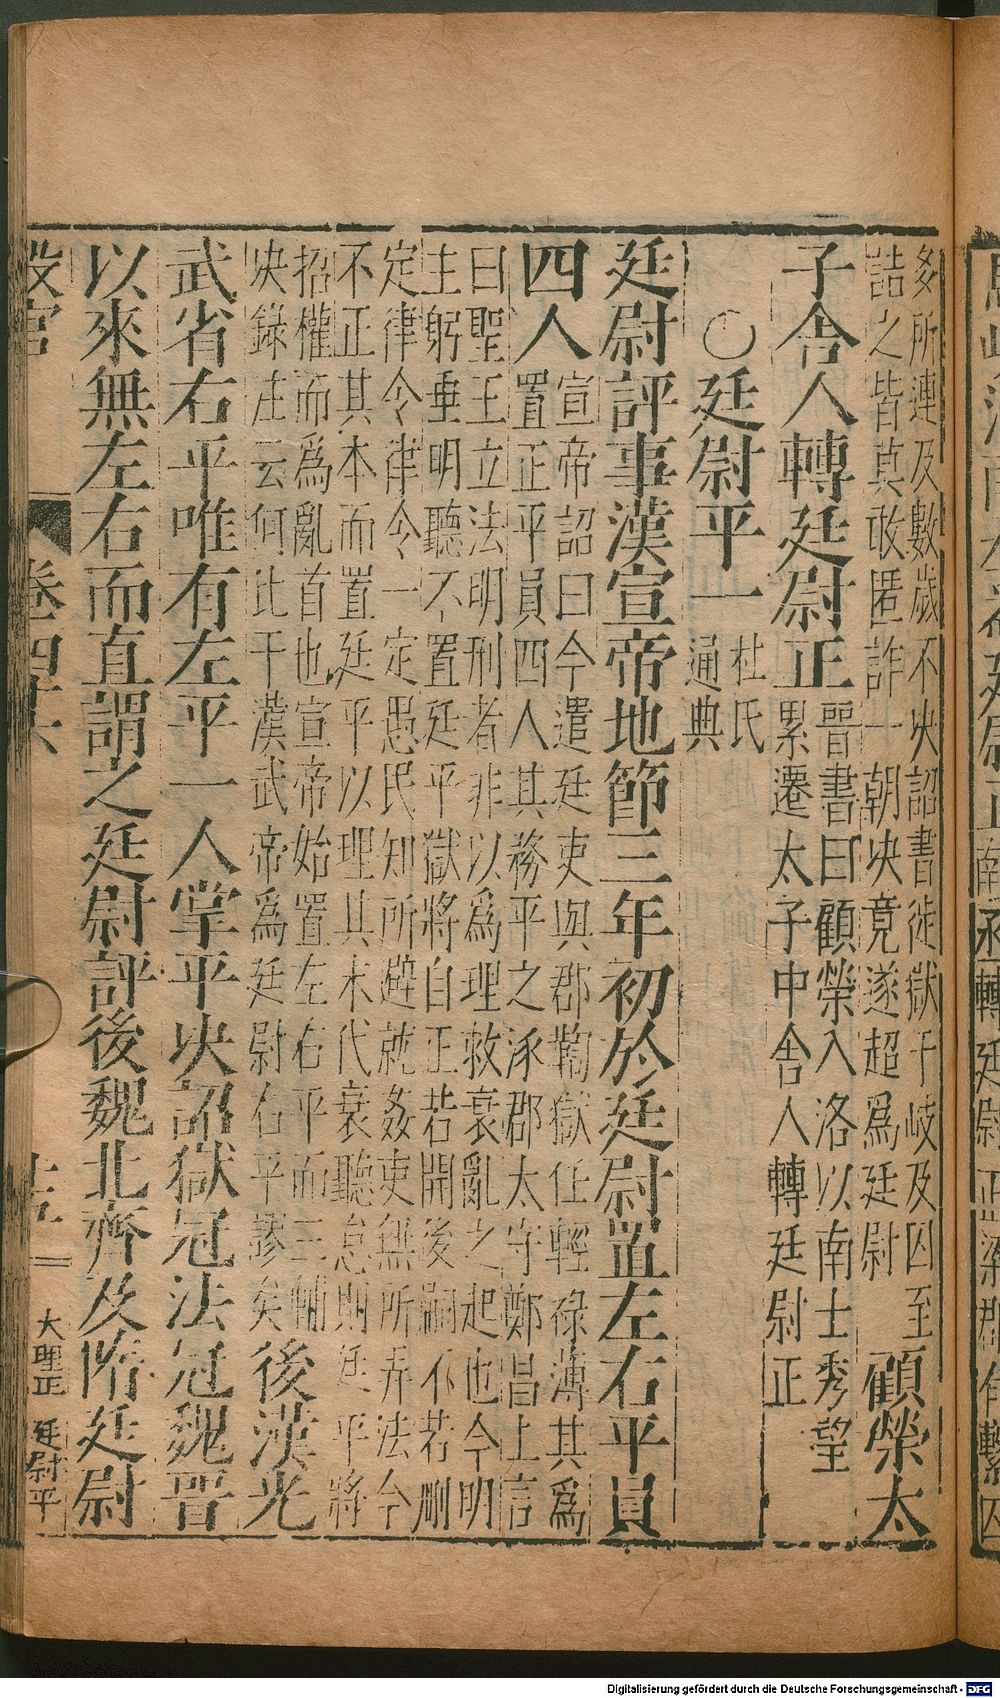 多所連及數歲不決詔書徙獄于岐及囚至
詰之皆莫敢匿詐一朝決竟遂超爲廷尉
顧榮太
子舍人轉廷尉正
晉書曰顧榮入洛以南士秀望
累遷太子中舍人轉廷尉正
○廷尉平一
杜氏
通典
廷尉評事漢宣帝地節三年初於廷尉置左右平員
四人
宣帝詔曰今遣廷吏與郡鞫獄任輕祿薄其爲
置正平員四人其務平之涿郡太守鄭昌上言
曰聖王立法明刑者非以爲理救衰亂之起也今明
主躬垂明聽不置廷平獄將自正若開後嗣不若刪
定律令律令一定愚民知所避就姦吏無所弄法今
不正其本而置廷平以理其末代衰聽怠則廷平將
招權而爲亂首也宣帝始置左右平而三輔
決錄注云何比干漢武帝爲廷尉右平謬矣
後漢光
武省右平唯有左平一人掌平決詔獄冠法冠魏晉
以來無左右而直謂之廷尉評後魏北齊及隋廷尉
設官
卷四十六
十五
大理正
廷尉平
Digitalisierung gefördert durch die Deutsche Forschungsgemeinschaft - DFG